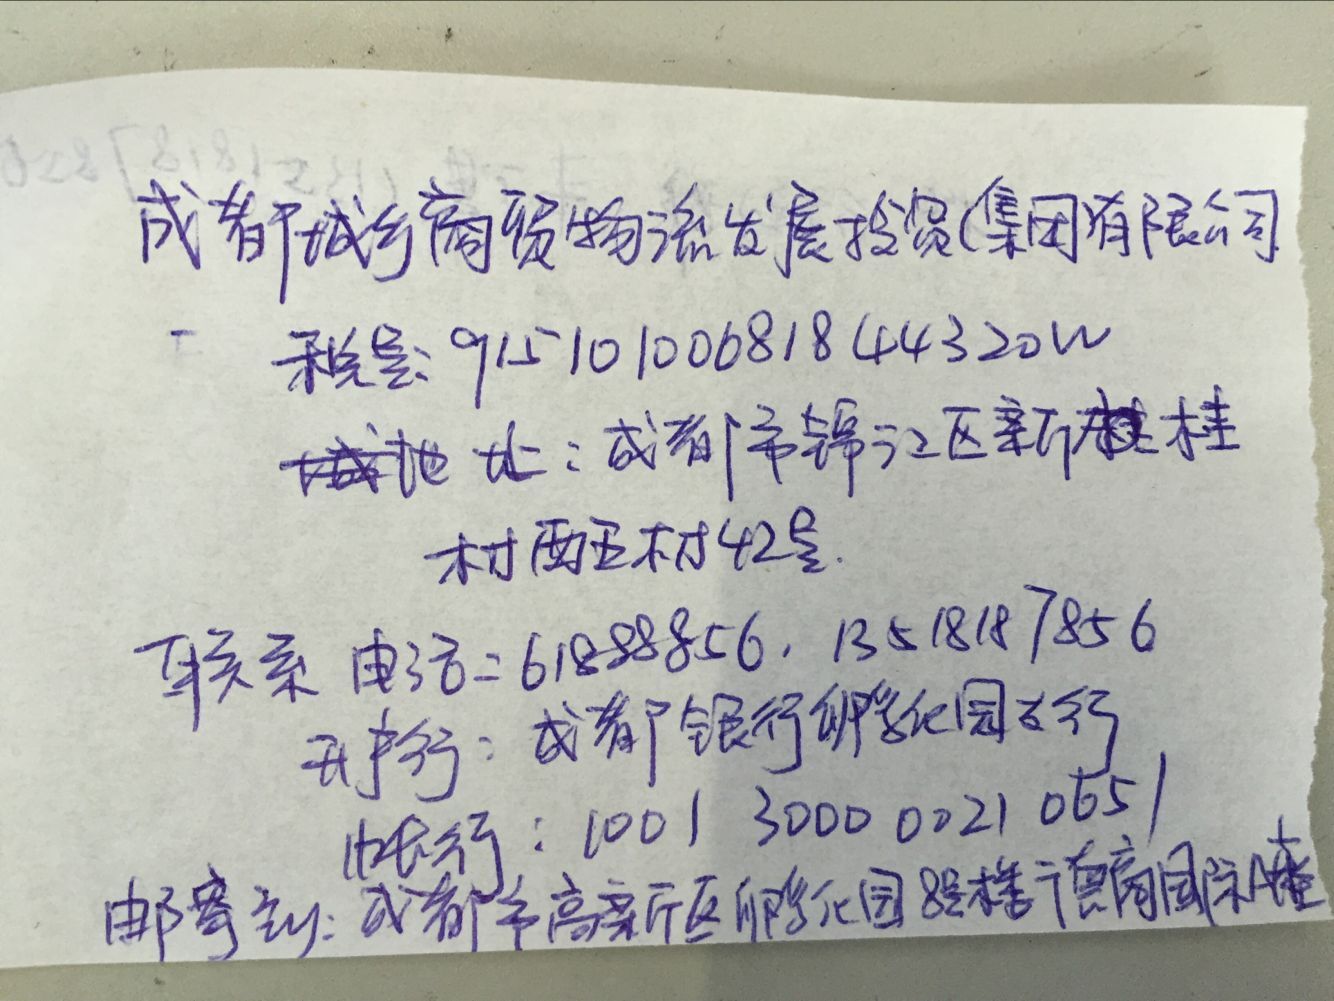 成都城乡商贸物流发展投资(集团有限公司
税号:91510100681844320W
地址:成都市锦江区新桂
村西五村42号.
联系电话:61888856.13518187856
开户行:成都银行孵化园支行
帐行:1001 3000 0021 0651
邮寄到:成都市高新区孵化园8号楼 德商国际A楼